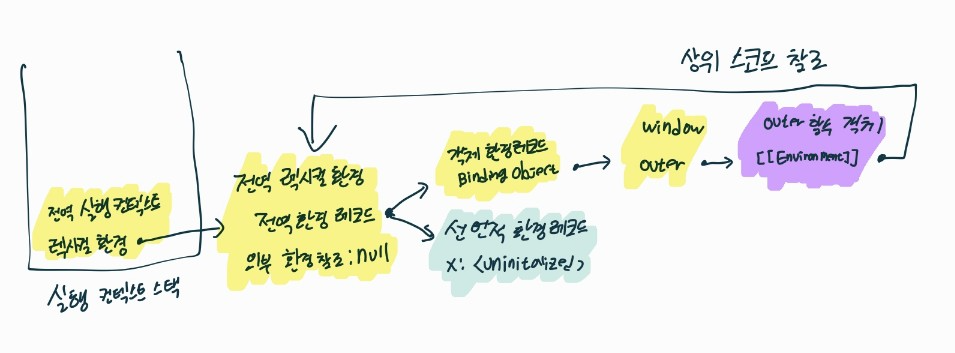 상위 스코프 참조
전역 실행 컨텍스트
렉시컬 환경
실행 컨텍스트 스택
전역 렉시컬 환경
전역 환경 레코드
외부 환경 참조 : null
객체 환경 레코드
Binding Object
선언적 환경 레코드
x: <uninitialized>
window
outer
outer 함수 객체
[[Environment]]